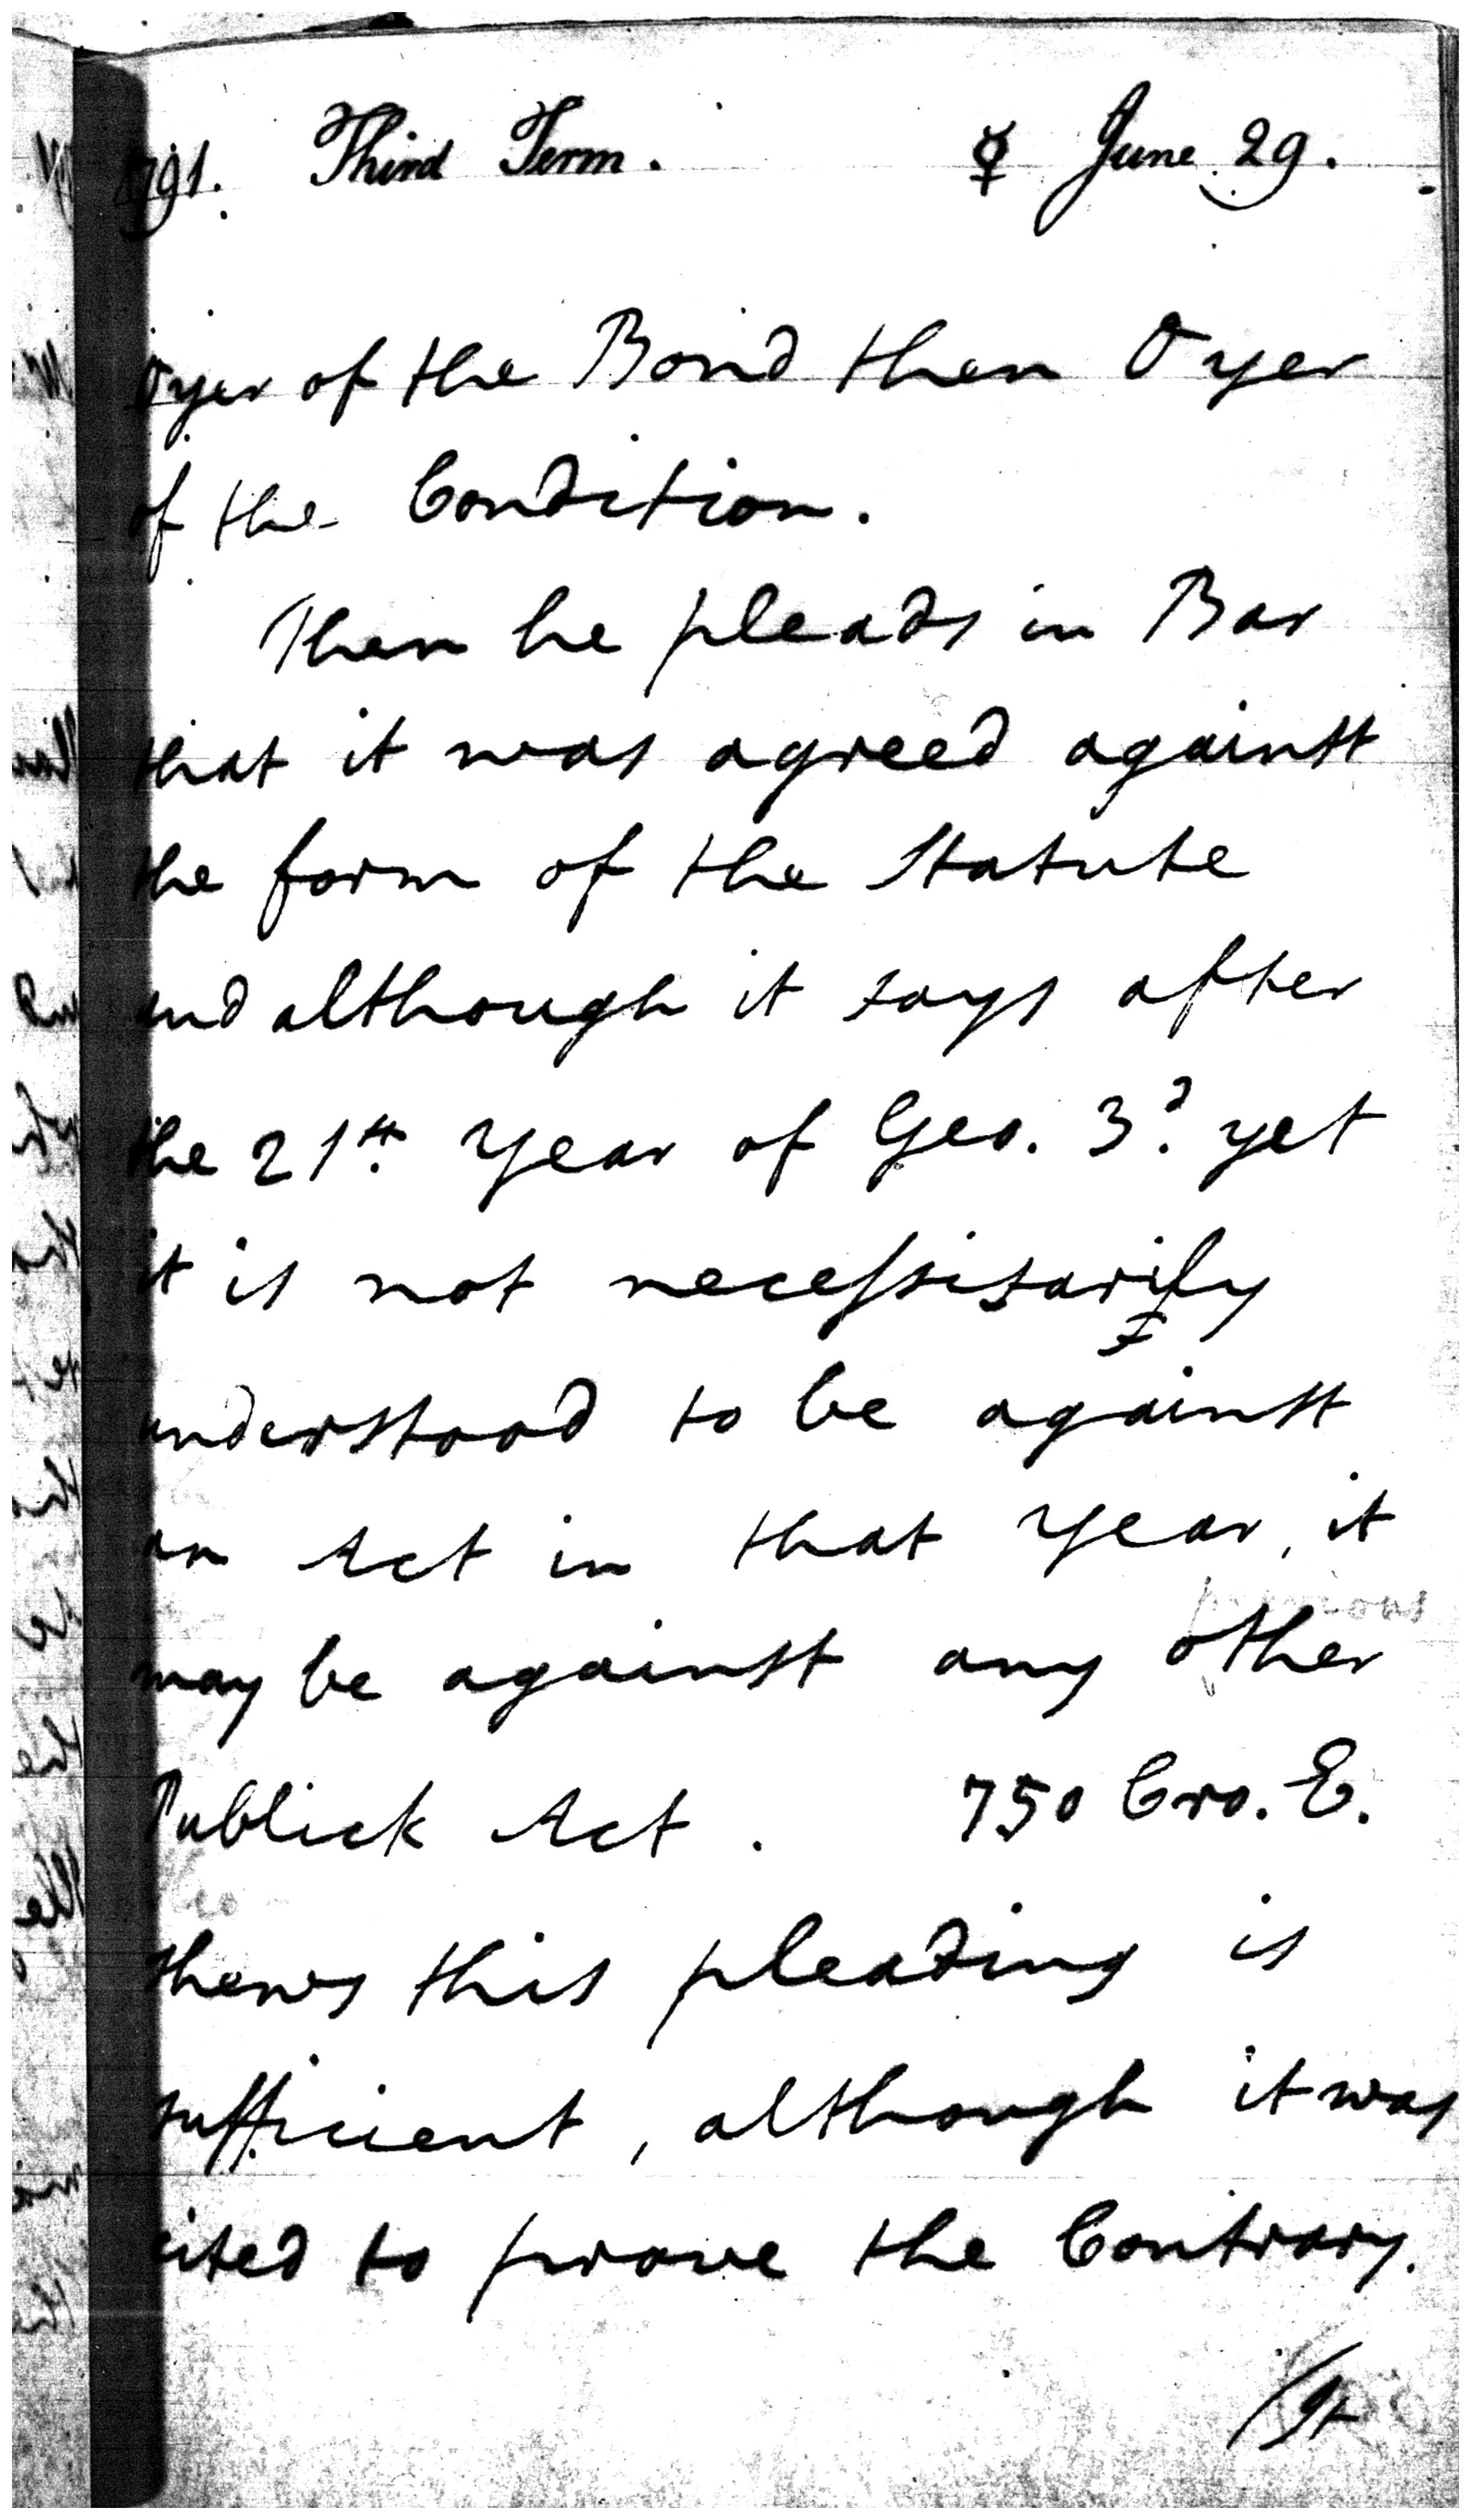 1791. Third Term. ☿ June 29.
Oyer of the Bond then Oyer
of the Condition.
Then he pleads in Bar
that it was agreed against
the form of the Statute
and although it says after
the 21st. Year of Geo. 3d. yet
it is not necessisarily
understood to be against
an Act in that Year, it
may be against any other
Publick Act. 750 Cro. E.
shews this pleading is
sufficient, although it was
cited to prove the Contrary.